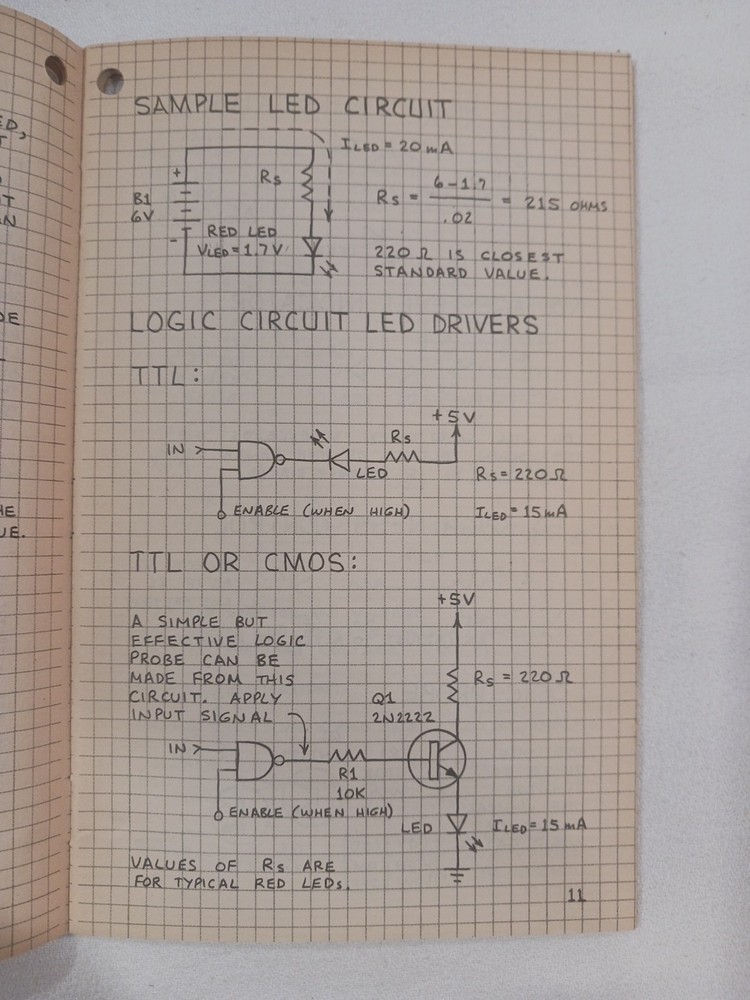 ED,
T
T
N
DE
HE
UE.
SAMPLE LED CIRCUIT
ILED = 20 mA
+
RS
B1
6V
-
RED LED
VLED = 1.7V
RS = 6-1.7 / .02 = 215 OHMS
220 Ω IS CLOSEST
STANDARD VALUE.
LOGIC CIRCUIT LED DRIVERS
TTL:
+5V
IN
RS
LED
RS = 220Ω
ENABLE (WHEN HIGH)
ILED = 15 mA
TTL OR CMOS:
+5V
A SIMPLE BUT
EFFECTIVE LOGIC
PROBE CAN BE
MADE FROM THIS
CIRCUIT. APPLY
INPUT SIGNAL
RS = 220Ω
Q1
2N2222
IN
R1
10K
ENABLE (WHEN HIGH)
LED
ILED = 15 mA
VALUES OF RS ARE
FOR TYPICAL RED LEDs.
11